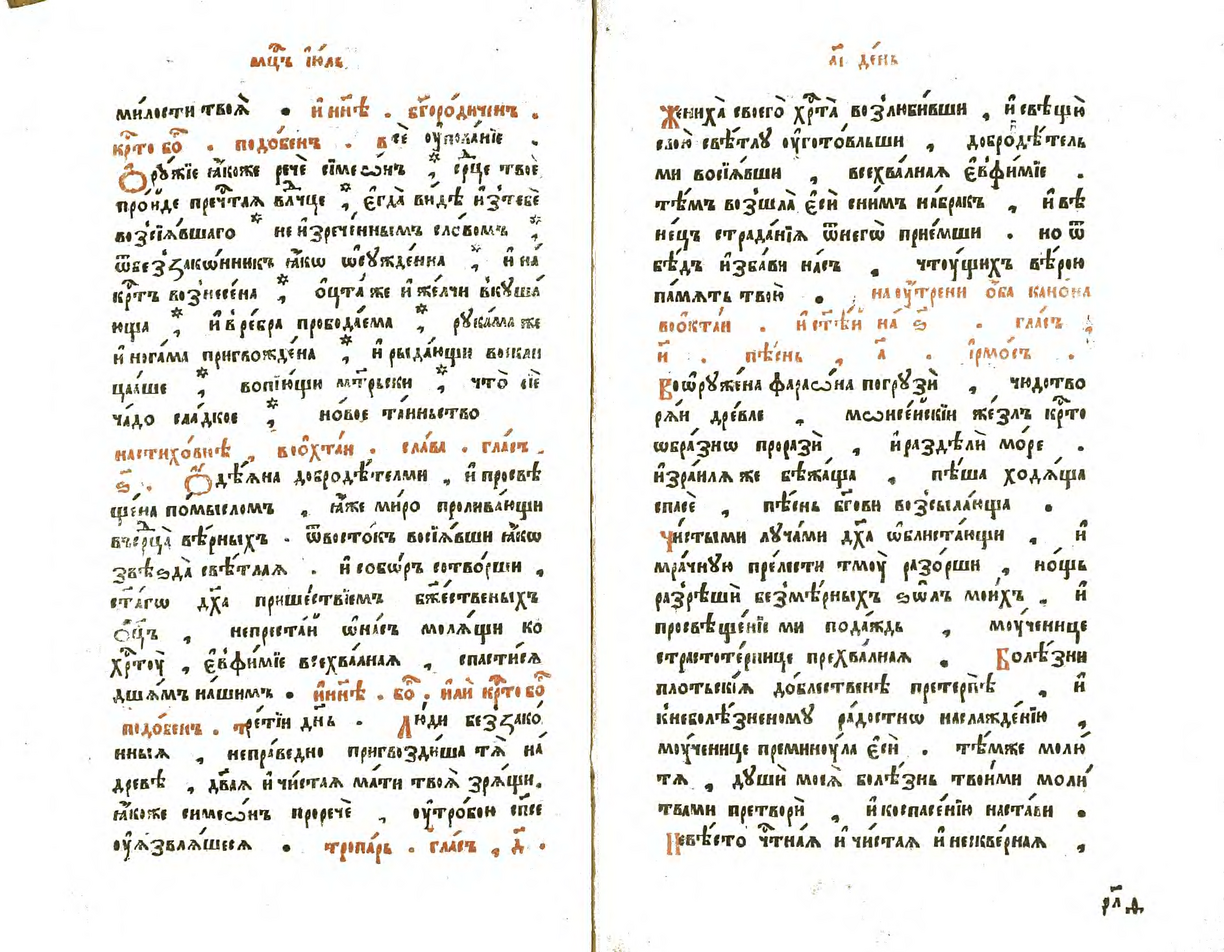 мц҃ъ і҆ю́ль
ми́лости твоѧ̀ • и҆ нн҃ѣ . бг҃оро́диченъ .
крⷭ҇то бо҃ . подо́бенъ . всѐ оу҆пова́нїе .
Ѻ҆рꙋ́жїе ꙗ҆́коже речѐ сїмеѡ́нъ * ср҃це твоѐ
про́йде преч҇тая влⷣчце * є҆гда̀ ви́дѣ и҆зтебѐ
возсїѧ́вшаго * не и҆зрече́ннымъ сло́вомъ *
ѿбеззако́нникъ ꙗ҆́кѡ ѡ҆сꙋжде́нна * и҆ на
крⷭ҇тъ вознесе́на * о҆́цта же и҆ же́лчи вкꙋша́
юща * и҆ в ре́бра пробода́ема * рꙋка́ма же
и҆ нога́ма пригвожде́на * и҆ рыда́ющи восклн
ца́аше * вопїю́щи мт҃рьски * что̀ сїѐ
ча́до сла́дкое * но́вое та́иньство
настихо́внѣ , воѻ҆хта́и . сла́ва . гла́съ .
ѕ҃ . Ѻ҆дѣ́яна добродѣ́телми , и҆ просвѣ
ще́на по́мысломъ , ꙗ҆́же ми́ро пролива́ющи
въср҃ца̀ вѣ́рныхъ . ѿвосто́къ восїѧ́вши ꙗ҆́кѡ
звѣзда̀ свѣ́тлая . и҆ собо́ръ сотво́рши ,
ст҃а́гѡ дх҃а прише́ствїемъ бж҃е́ственыхъ
ѻ҆ц҃ъ , непреста́й ѡ҆на́съ моля́щи ко
хрⷭ҇тоу̀ , є҆ѵфи́мїе всехва́лная , спасти́сѧ
дш҃ѧ́мъ на́шимъ . и҆ нн҃ѣ . бо҃ . и҆лѝ крⷭ҇то бо҃
подо́бенъ . тре́тїи дн҃ь . Лю́ди беззако́
нныѧ , непра́ведно пригвозди́ша тѧ̀ на
древѣ , дв҃ая и҆ чи́стая ма́ти твоѧ̀ зрѧ́щи .
ꙗ҆́коже симеѡ́нъ проречѐ , оу҆тро́бою сп҃се
оу҆язвля́шесѧ . тропа́рь . гла́съ , д҃ .
а҃і де́нь
Жениха̀ своего̀ хрⷭ҇та̀ возлюби́вши , и҆ свѣщю̀
свою̀ свѣ́тлꙋ оу҆гото́вльши , добродѣ́тель
ми восїѧ́вши , всехва́лная є҆ѵфи́мїе .
тѣ́мъ возшла̀ є҆сѝ сни́мъ на́бракъ , и҆ вѣ
не́цъ страда́нїѧ ѿнегѡ̀ прие́мши . но ѿ
бѣ́дъ и҆зба́ви на́съ , чтоу́щихъ вѣ́рою
па́мѧть твою̀ . на оу҆́трени о҆́ба кано́на
воѻ҆кта́и . и҆ ст҃ѣ́й на̀ ѕ҃ . гла́съ ,
и҃ . пѣ́снь , а҃ . і҆рмо́съ .
Воѡ҆рꙋже́на фараѡ́на погрꙋзѝ , чюдотво
рѧ́и дре́вле , мѡисе́йскїи же́злъ крⷭ҇то
ѡ҆бра́знѡ проразѝ , и҆ раздѣлѝ мо́ре .
и҆зра́илѧ же бѣжа́ща , пѣ́ша ходѧ́ща
спасѐ , пѣ́снь бг҃ови возсыла́юща .
Чи́стыми лꙋча́ми дх҃а ѡ҆блиста́ющи , и҆
мра́чную пре́лести тмоу̀ разо́рши , но́щь
разрѣшѝ безмѣ́рныхъ ѕѡ́лъ мои́хъ . и҆
просвѣще́нїе ми пода́ждь , моу́ченице
страстоте́рпице прехва́лная . Болѣ́зни
пло́тьскїѧ до́блественѣ претерпѣ̀ , и҆
кнеболѣ́зненомꙋ ра́достнѡ наслажде́нїю ,
моу́ченице преминоу́ла є҆сѝ . тѣ́мже молю́
тѧ , дꙋшѝ моеѧ̀ болѣ́знь твои́ми моли́
твами претворѝ , и҆ коспасе́нїю наста́ви .
Невѣ́сто чⷭ҇тнаѧ и҆ чи́стаѧ и҆ нескве́рная ,
рл҃д